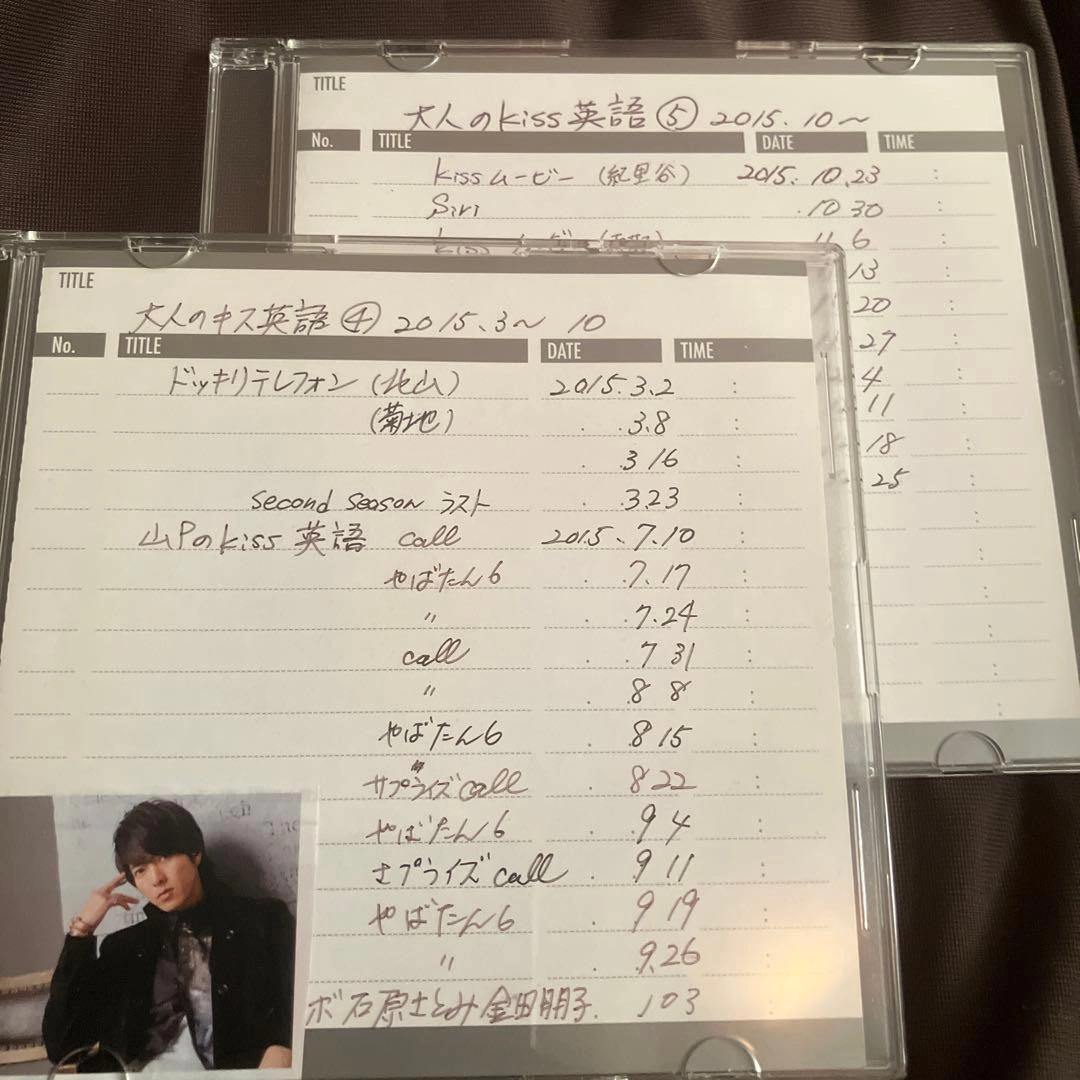 TITLE
大人のkiss英語⑤ 2015.10〜
No. TITLE DATE TIME
kissムービー (紀里谷) 2015.10.23 :
Siri .10 30 :
kiss ムービー 11 6 :
13 :
20 :
27 :
4 :
11 :
18 :
25 :
TITLE
大人のキス英語④ 2015.3〜 10
No. TITLE DATE TIME
ドッキリテレフォン (北山) 2015.3.2 :
(菊地) . .3.8 :
. .3 16 :
second season ラスト . .3.23 :
山Pのkiss 英語 call 2015.7.10 :
やばたん6 . .7.17 :
〃 . .7.24 :
call . .7 31 :
〃 . .8 8 :
やばたん6 . .8 15 :
サプライズcall . 8 22 :
やばたん6 . 9 4 :
さプライズcall . 9 11 :
やばたん6 . 9 19 :
〃 . 9.26 :
ボ 石原さとみ 金田朋子. 10 3 :